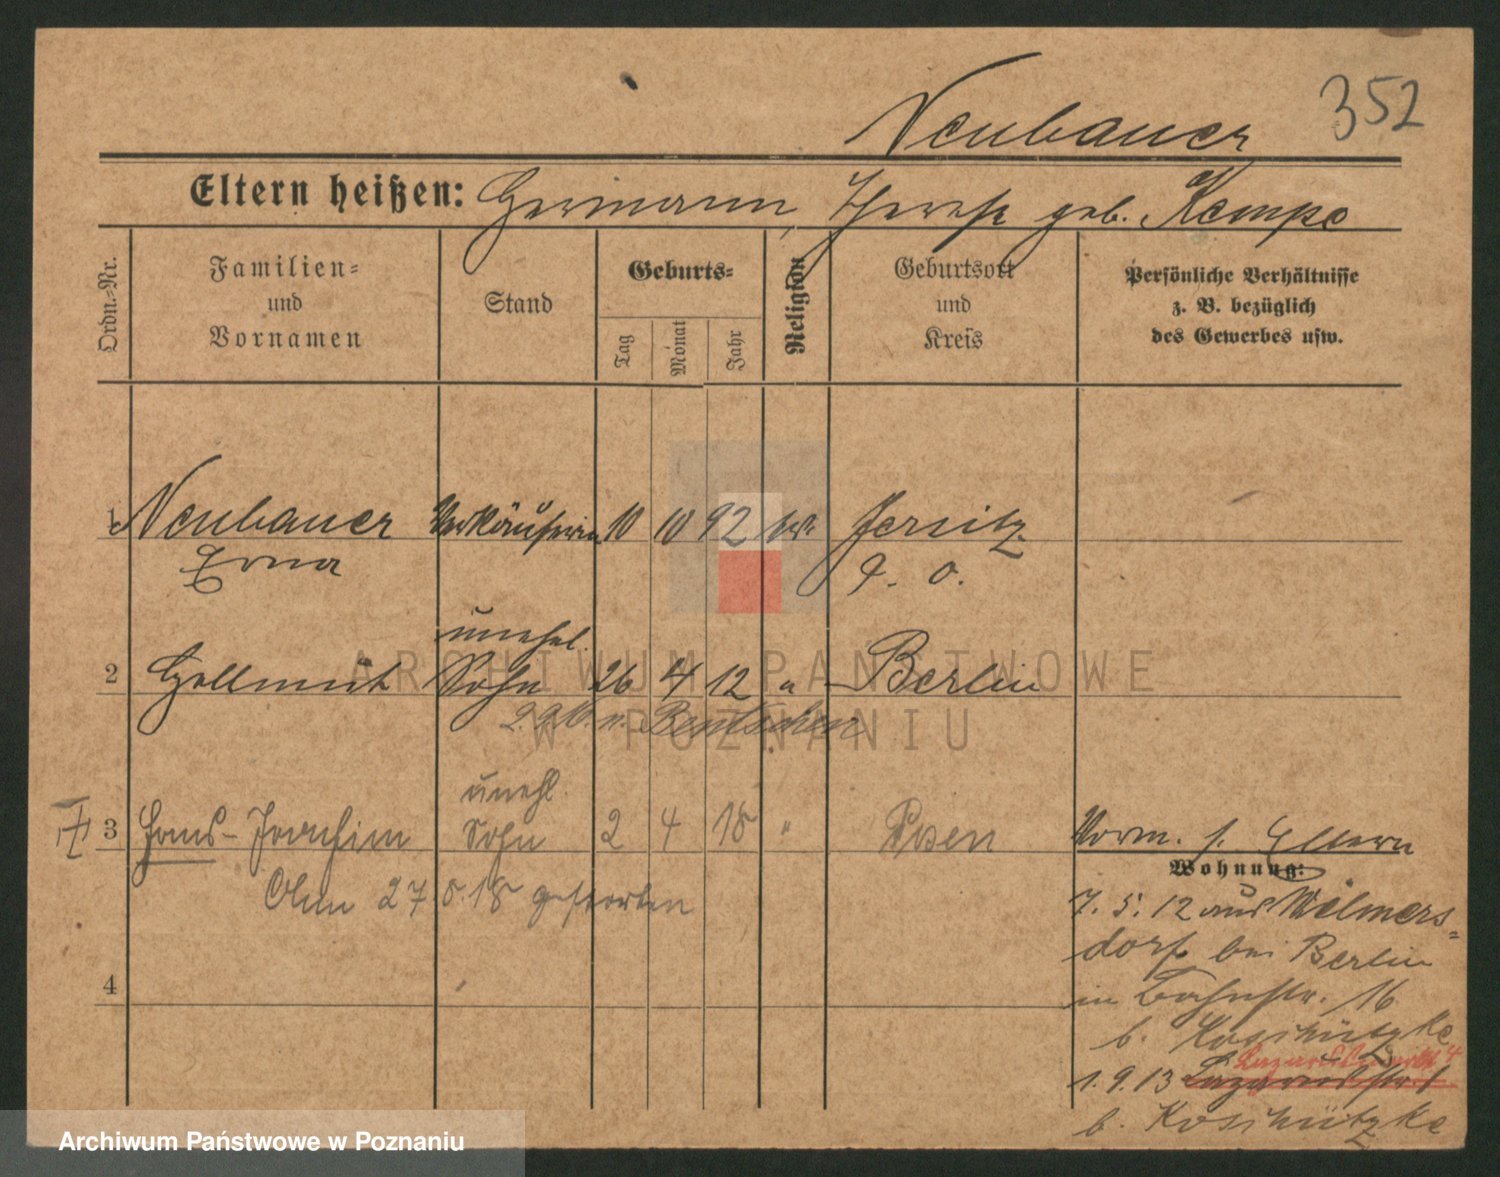 352
Neubauer
Eltern heißen: Hermann Therese geb. Kempe
Ordn.-Nr.
Familien-
und
Vornamen
Stand
Geburts-
Tag
Monat
Jahr
Religion
Geburtsort
und
Kreis
Persönliche Verhältnisse
z. B. bezüglich
des Gewerbes usw.
1 Neubauer Verkäuferin 10 10 92 Jersitz
Erna P. O.
unehel.
2 Hellmut Sohn 26 4 12 " Berlin
Bentschen
unehl.
3 Hans-Joachim Sohn 2 4 18 " Posen
Vorm. s. Eltern
27. 5. 18 gestorben
Wohnung:
7. 5. 12 aus Wilmers=
dorf bei Berlin
in Bahnstr. 16
b. Koschützke
1. 9. 13
b. Koschützke
4
ARCHIWUM PAŃSTWOWE
W POZNANIU
Archiwum Państwowe w Poznaniu